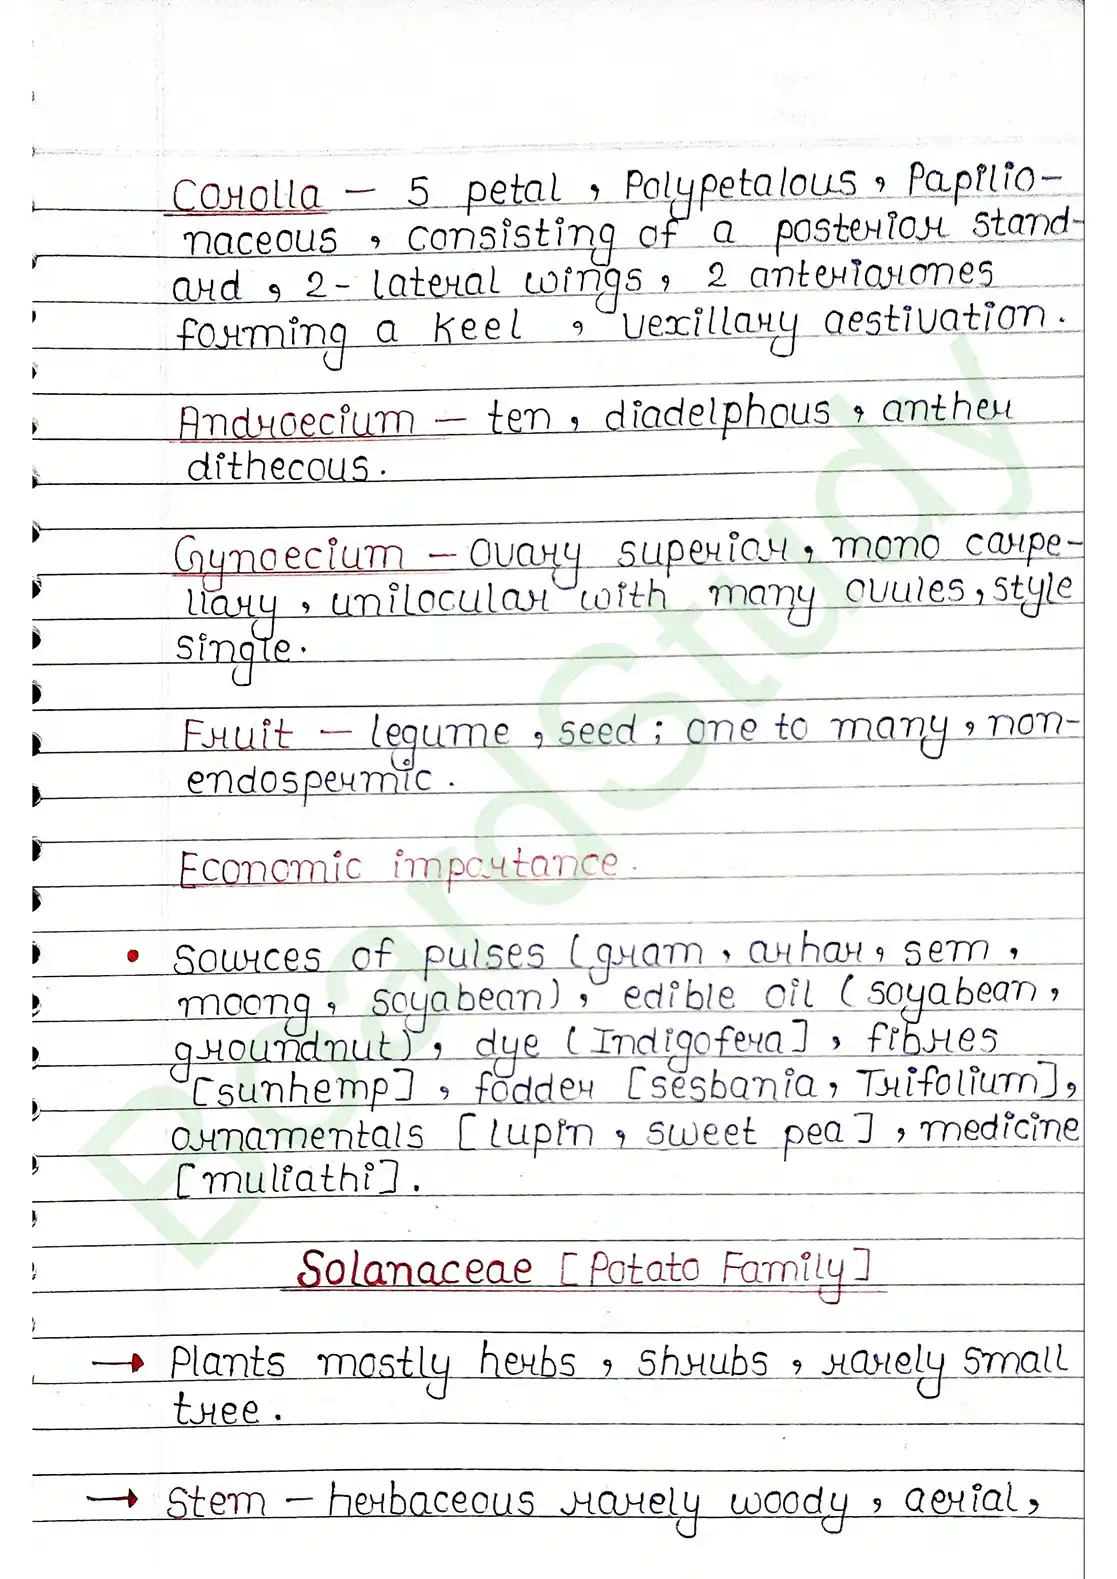 Corolla — 5 petal, Polypetalous, Papilio-
naceous, consisting of a posterior stand-
ard, 2- lateral wings, 2 anteriorones
forming a Keel, vexillary aestivation.
Androecium — ten, diadelphous, anther
dithecous.
Gynoecium — Ovary superior, mono carpe-
llary, unilocular with many ovules, style
single.
Fruit — legume, seed; one to many, non-
endospermic.
Economic importance.
• Sources of pulses (gram, arhar, sem,
moong, soyabean), edible oil (soyabean,
groundnut), dye (Indigofera], fibres
[sunhemp], fodder [sesbania, Trifolium],
ornamentals [lupin, sweet pea], medicine
[muliathi].
Solanaceae [Potato Family]
→ Plants mostly herbs, shrubs, rarely small
tree.
→ Stem — herbaceous rarely woody, aerial,
BoardStudy